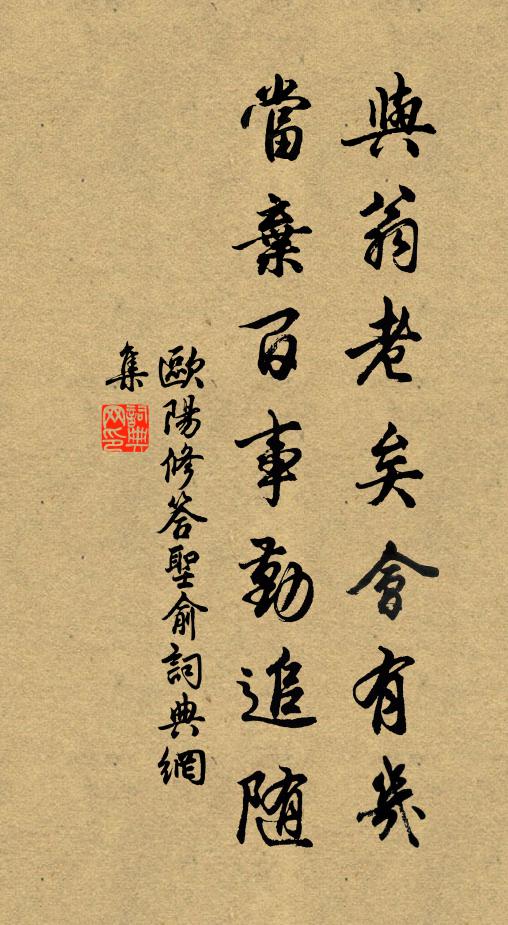 與翁老矣會有幾
當棄百事勤追随
歐陽修答聖俞詞典網
集
詞典
网印